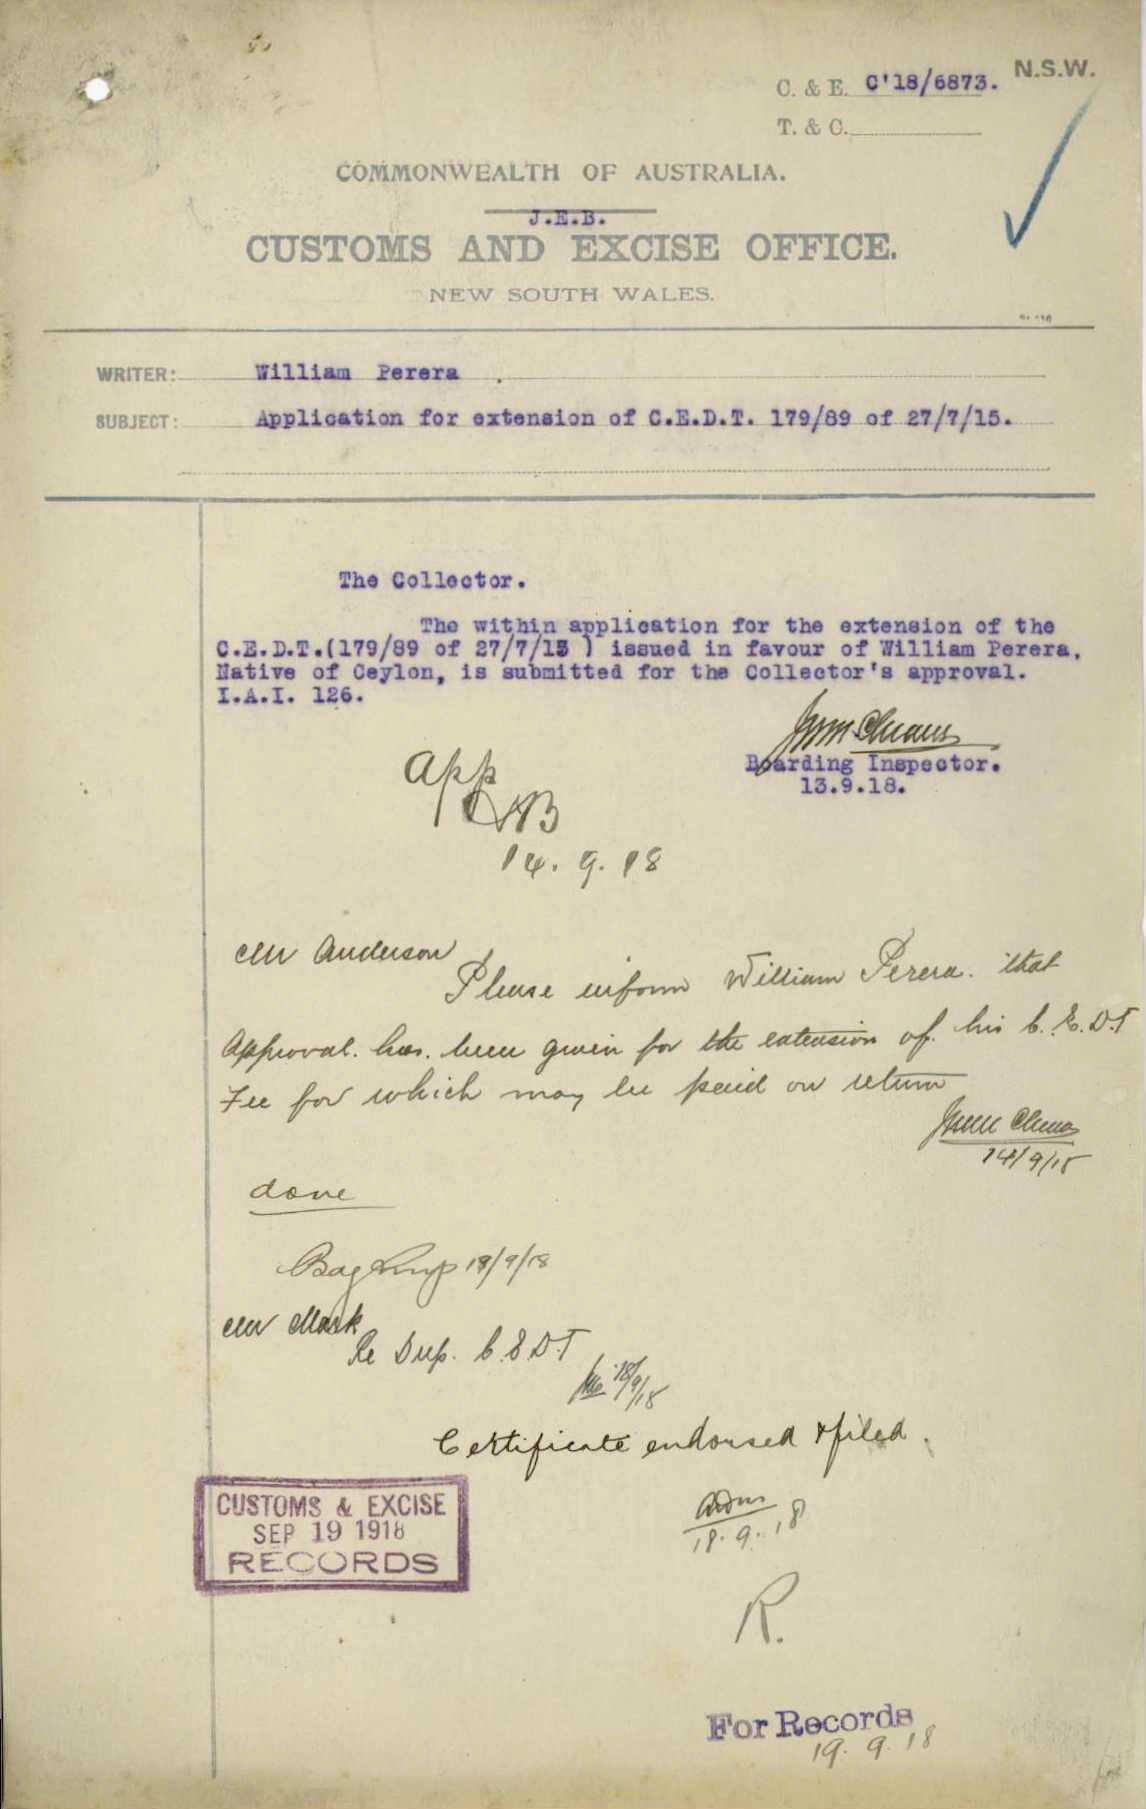 N.S.W.
C. & E. C'18/6873.
T. & C.
COMMONWEALTH OF AUSTRALIA.
J.E.B.
CUSTOMS AND EXCISE OFFICE.
NEW SOUTH WALES.
WRITER: William Perera .
SUBJECT: Application for extension of C.E.D.T. 179/89 of 27/7/15.
The Collector.
The within application for the extension of the
C.E.D.T.(179/89 of 27/7/15 ) issued in favour of William Perera,
Native of Ceylon, is submitted for the Collector's approval.
I.A.I. 126.
Boarding Inspector.
13.9.18.
App
14. 9. 18
Mr Anderson
Please inform William Perera. that
Approval. has. been given for the extension of. his C.E.D.T
Fee for which may be paid on return
14/9/18
done
18/9/18
Mr Mark
Re Dup. C.E.D.T
18/9/18
Certificate endorsed & filed.
18.9.18
CUSTOMS & EXCISE
SEP 19 1918
RECORDS
R.
For Records
19.9.18